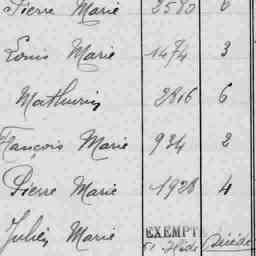 Pierre Marie 2580 6
Louis Marie 1474 3
Mathurin 2816 6
François Marie 934 2
Pierre Marie 1928 4
Julien Marie EXEMPT